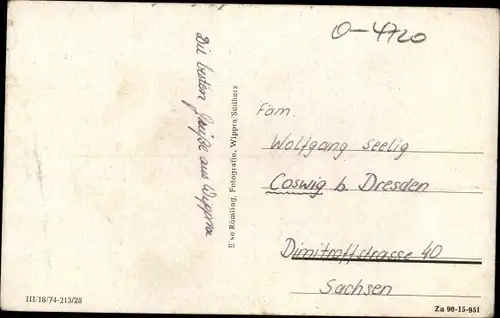 O-4720
Die besten Grüße aus Wippra
Else Römling, Fotografie, Wippra/Südharz
Fam.
Wolfgang Seelig
Coswig b. Dresden
Dimitroffstrasse 40
Sachsen
III/18/74-213/28
Za 90-15-951